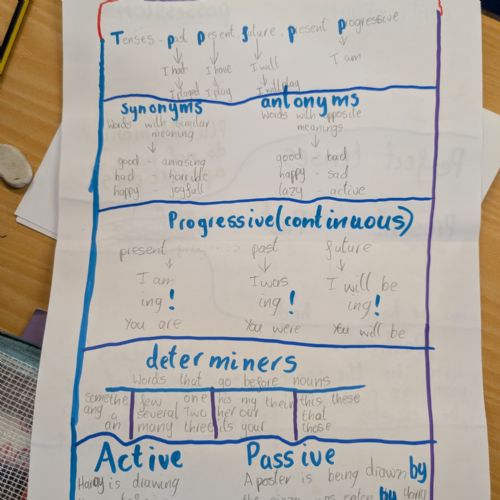 Tenses - past, present, future, present progressive
I had I have I will I am
I played I play I will play
synonyms antonyms
Words with similar meaning Words with opposite meanings
good - amaising good - bad
bad - horrible happy - sad
happy - joyfull lazy - active
Progressive(continuous)
present past future
I am I was I will be
ing! ing! ing!
You are You were You will be
determiners
Words that go before nouns
some the few one his my their this these
ang a several two her our that
an many three its your those
Active Passive
Harry is drawing A poster is being drawn by
is eaten by Harry